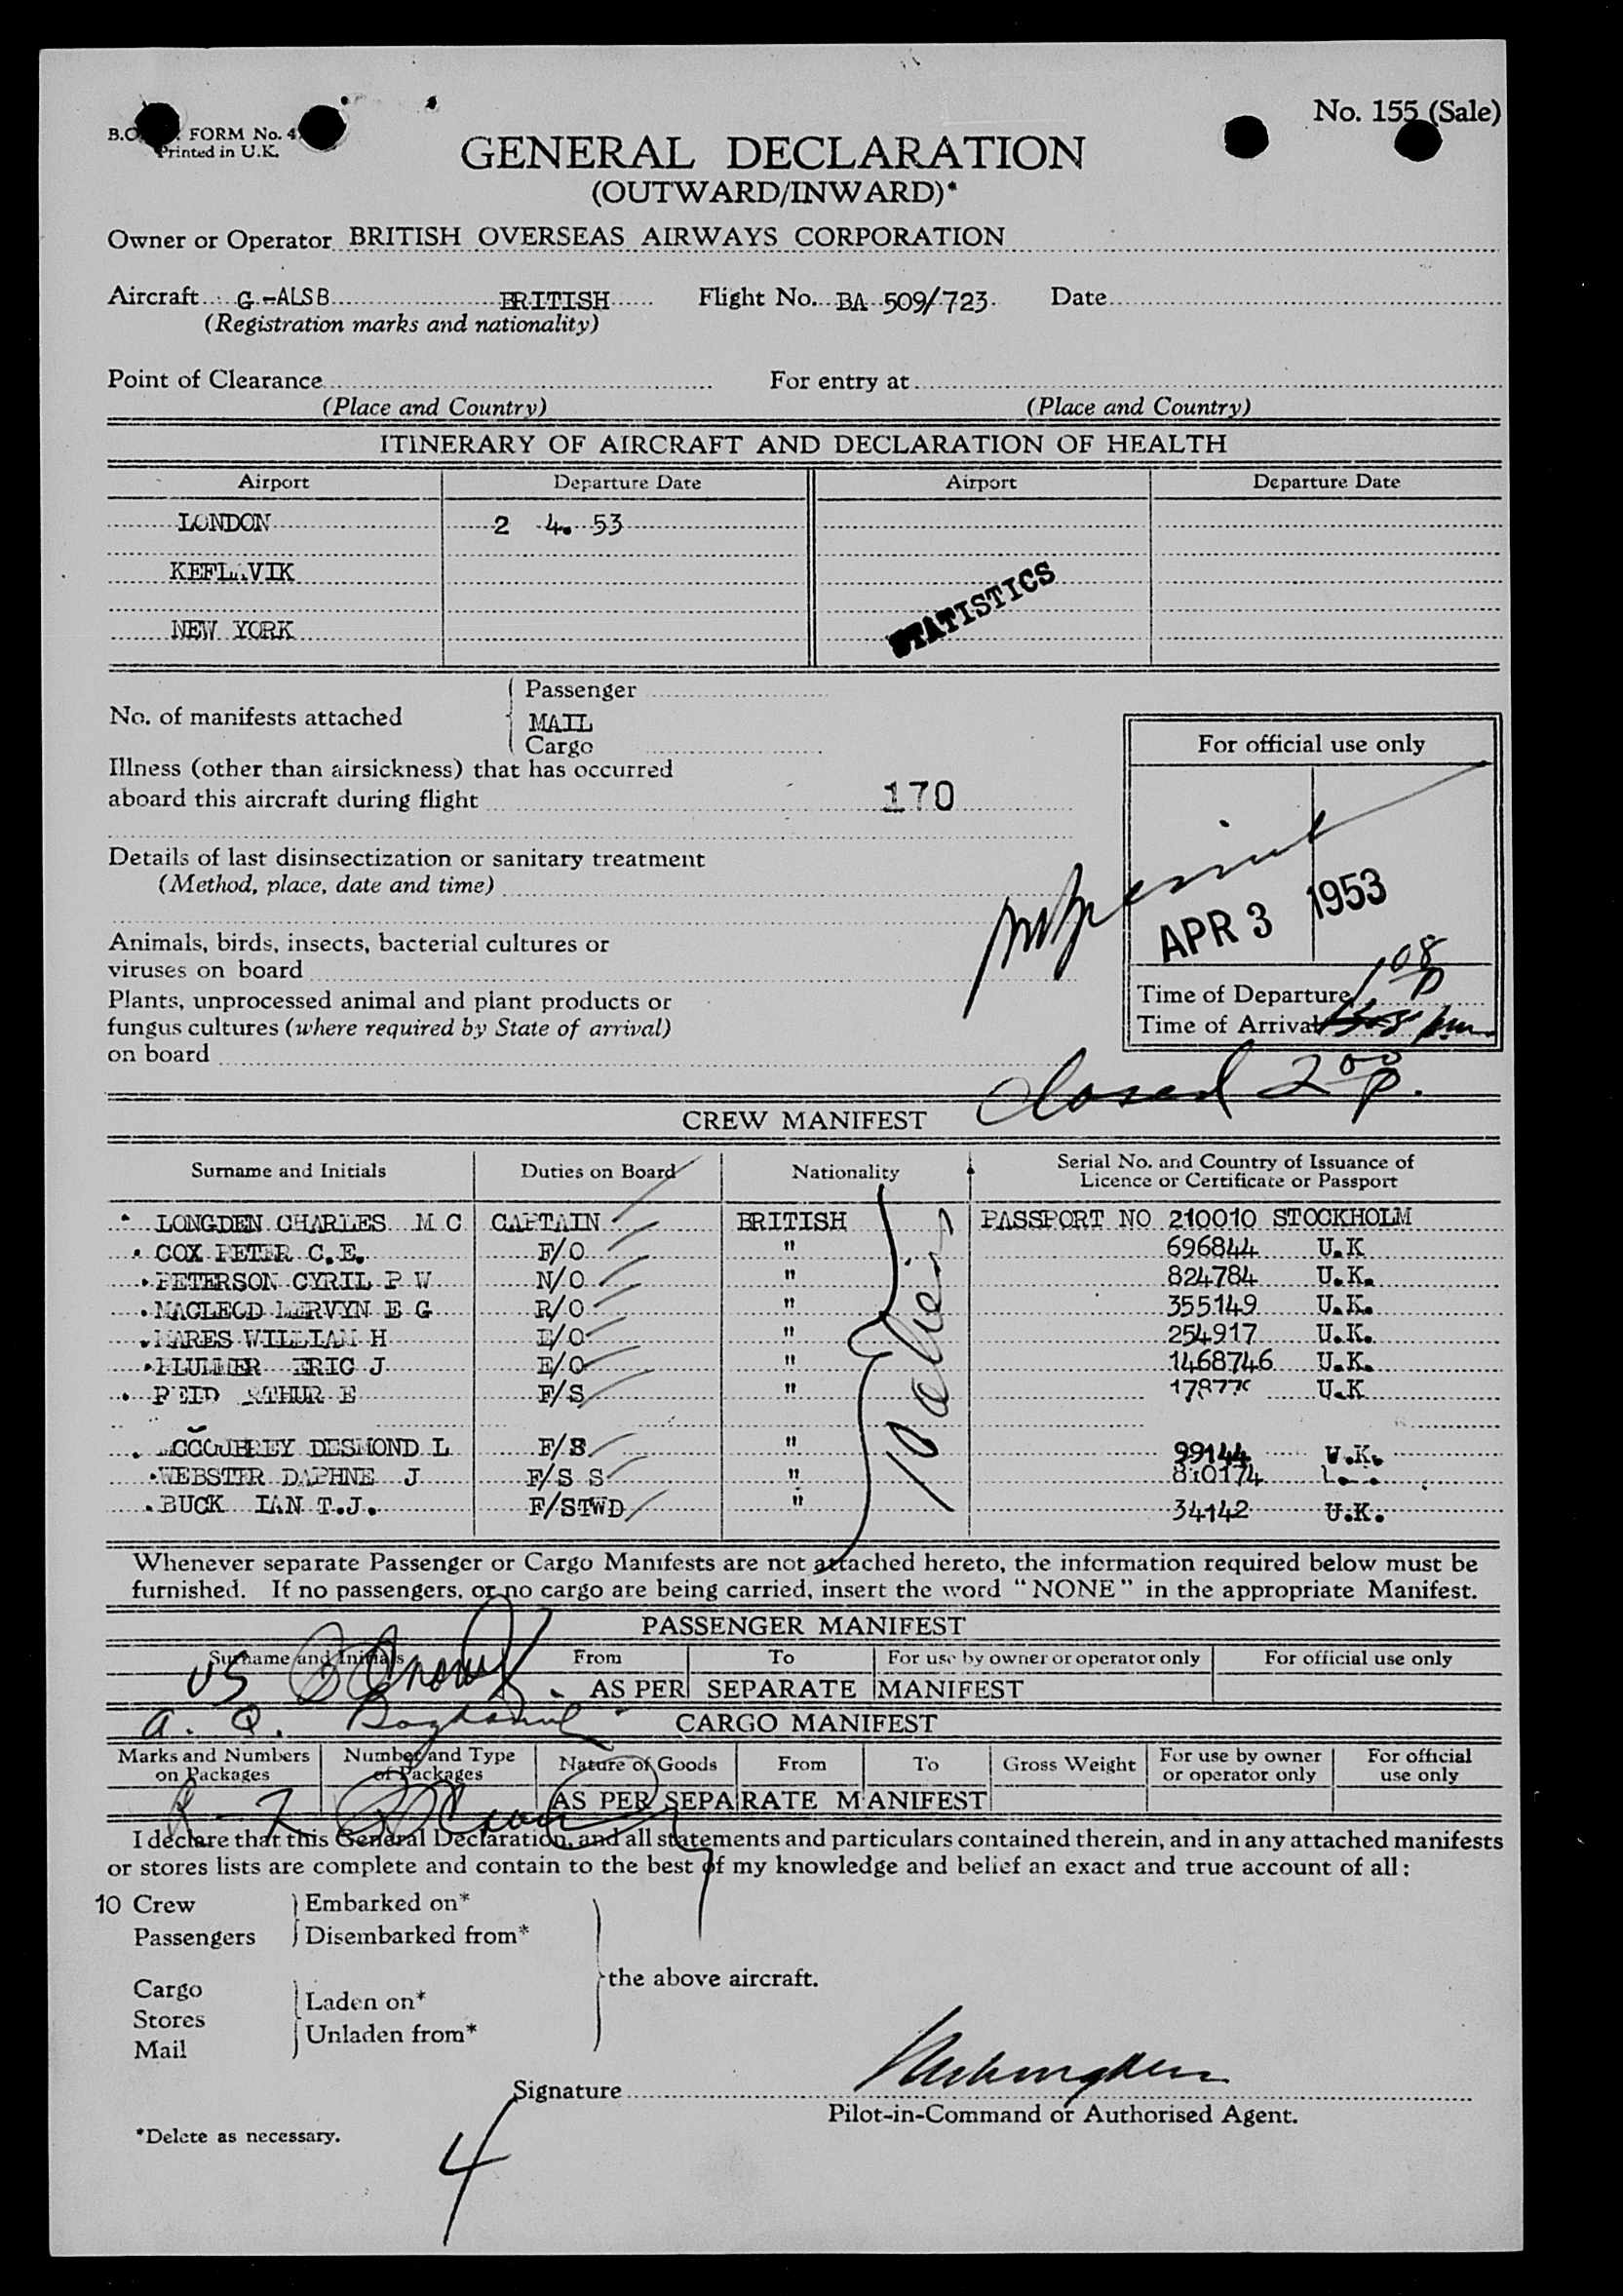 No. 155 (Sale)
FORM No. 4
Printed in U.K.
GENERAL DECLARATION
(OUTWARD/INWARD)*
Owner or Operator BRITISH OVERSEAS AIRWAYS CORPORATION
Aircraft G-ALSB BRITISH Flight No. BA 509/723 Date
(Registration marks and nationality)
Point of Clearance For entry at
(Place and Country) (Place and Country)
ITINERARY OF AIRCRAFT AND DECLARATION OF HEALTH
Airport Departure Date Airport Departure Date
LONDON 2 4. 53
KEFLAVIK
STATISTICS
NEW YORK
Passenger
No. of manifests attached
MAIL
Cargo
For official use only
Illness (other than airsickness) that has occurred
aboard this aircraft during flight 170
Details of last disinsectization or sanitary treatment
(Method, place, date and time)
APR 3 1953
Animals, birds, insects, bacterial cultures or
viruses on board
Plants, unprocessed animal and plant products or
fungus cultures (where required by State of arrival)
on board
Time of Departure 1 08 P
Time of Arrival
Closed 2 00 P.
CREW MANIFEST
Surname and Initials Duties on Board Nationality Serial No. and Country of Issuance of
Licence or Certificate or Passport
LONGDEN CHARLES M C CAPTAIN BRITISH PASSPORT NO 210010 STOCKHOLM
COX PETER C.E. F/O " 696844 U.K
PETERSON CYRIL P W N/O " 824784 U.K.
MACLEOD MERVYN E G R/O " 355149 U.K.
WILLIAM H E/O " 254917 U.K.
ERIC J E/O " 1468746 U.K.
REID ARTHUR E F/S " U.K
DESMOND L F/S " 99144 U.K.
WEBSTER DAPHNE J F/S S " 810174
BUCK IAN T.J. F/STWD " 34142 U.K.
Whenever separate Passenger or Cargo Manifests are not attached hereto, the information required below must be
furnished. If no passengers, or no cargo are being carried, insert the word "NONE" in the appropriate Manifest.
PASSENGER MANIFEST
Surname and Initials From To For use by owner or operator only For official use only
US
AS PER SEPARATE MANIFEST
CARGO MANIFEST
Marks and Numbers on Packages Number and Type of Packages Nature of Goods From To Gross Weight For use by owner or operator only For official use only
AS PER SEPARATE MANIFEST
I declare that this General Declaration, and all statements and particulars contained therein, and in any attached manifests
or stores lists are complete and contain to the best of my knowledge and belief an exact and true account of all:
10 Crew Embarked on*
Passengers Disembarked from*
the above aircraft.
Cargo
Laden on*
Stores
Unladen from*
Mail
Signature
Pilot-in-Command or Authorised Agent.
*Delete as necessary.
4